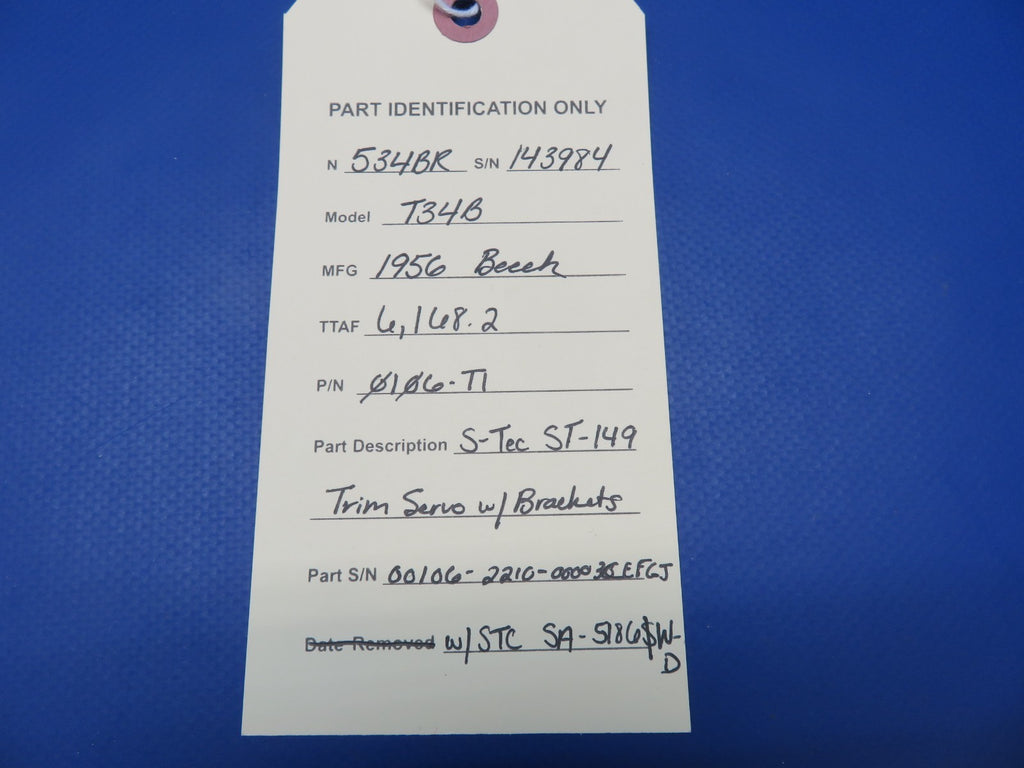 PART IDENTIFICATION ONLY
N 534BR S/N 143984
Model T34B
MFG 1956 Beech
TTAF 6,168.2
P/N 0106-T1
Part Description S-Tec ST-149
Trim Servo w/ Brackets
Part S/N
Date Removed w/ STC
D